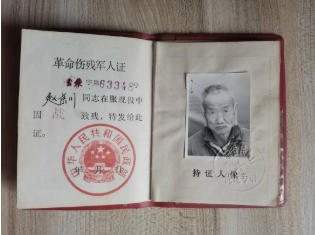 革命伤残军人证
字第633489
同志在服现役中
因 战 致残，特发给此
证。
中华人民共和国民政部
持证人像